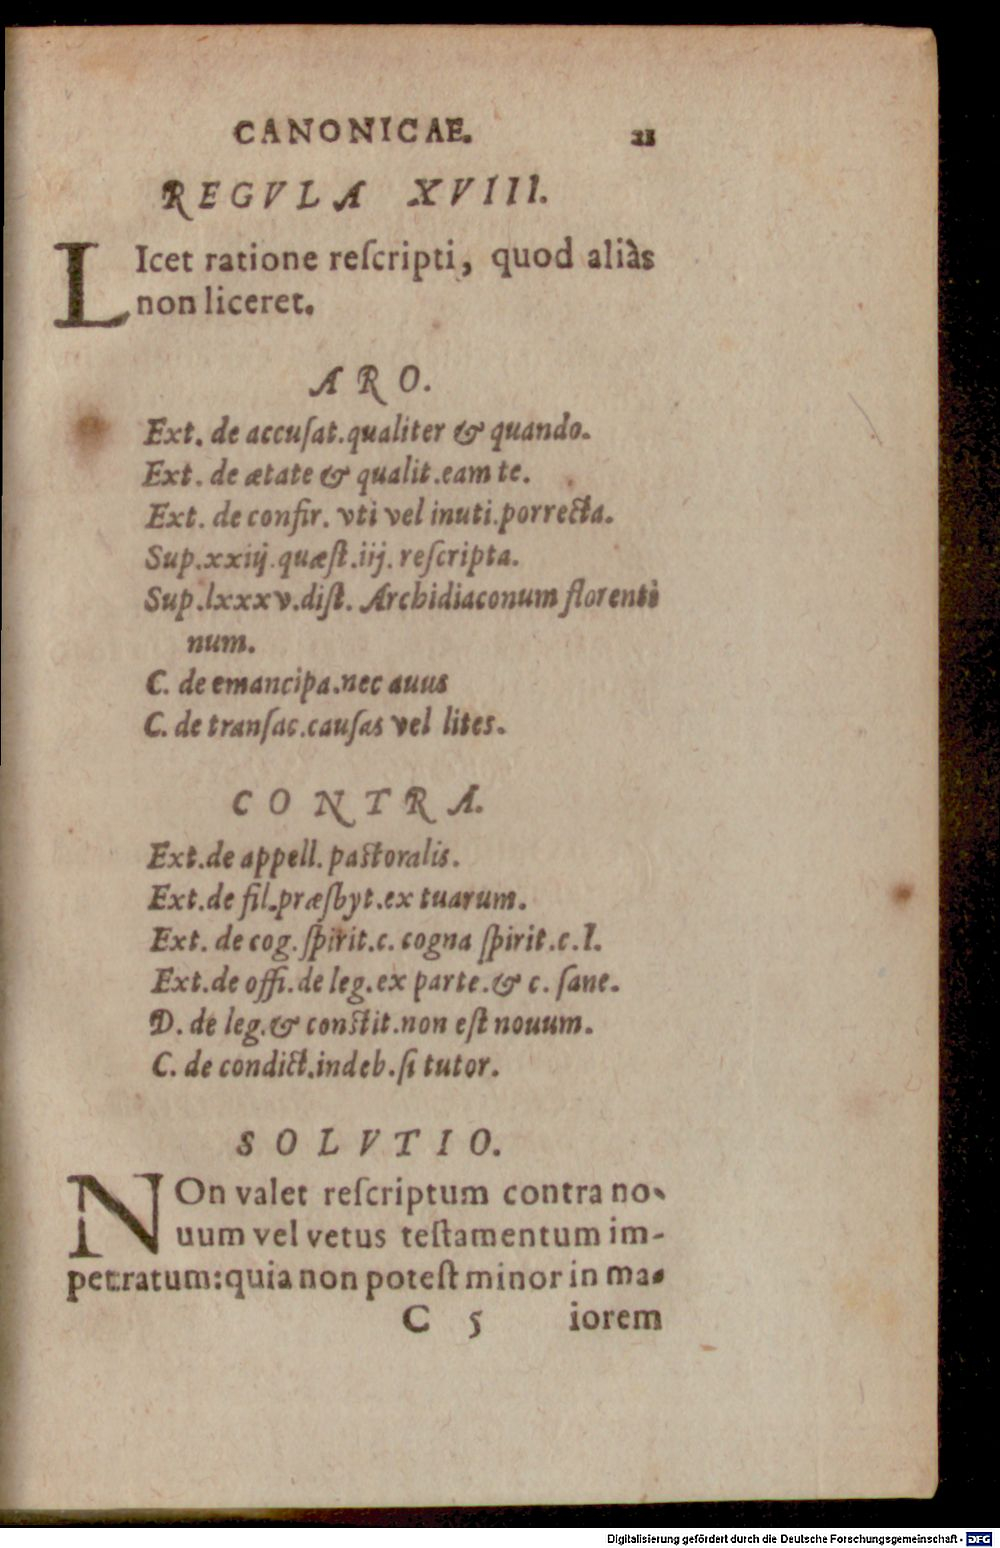 CANONICAE. 21
REGVLA XVIII.
LIcet ratione reſcripti, quod aliàs
non liceret.
ARO.
Ext. de accuſat.qualiter & quando.
Ext. de ætate & qualit.eam te.
Ext. de confir. vti vel inuti.porrecta.
Sup.xxiij.quæſt.iij. reſcripta.
Sup.lxxxv.diſt. Archidiaconum florenti
num.
C. de emancipa.nec auus
C. de tranſac.cauſas vel lites.
CONTRA.
Ext.de appell. paſtoralis.
Ext.de fil.præſbyt.ex tuarum.
Ext. de cog.ſpirit.c. cogna ſpirit.c.l.
Ext.de offi.de leg.ex parte.& c. ſane.
D. de leg.& conſtit.non eſt nouum.
C. de condict.indeb.ſi tutor.
SOLVTIO.
NOn valet reſcriptum contra no-
uum vel vetus teſtamentum im-
petratum:quia non poteſt minor in ma-
C 5 iorem
Digitalisierung gefördert durch die Deutsche Forschungsgemeinschaft - DFG